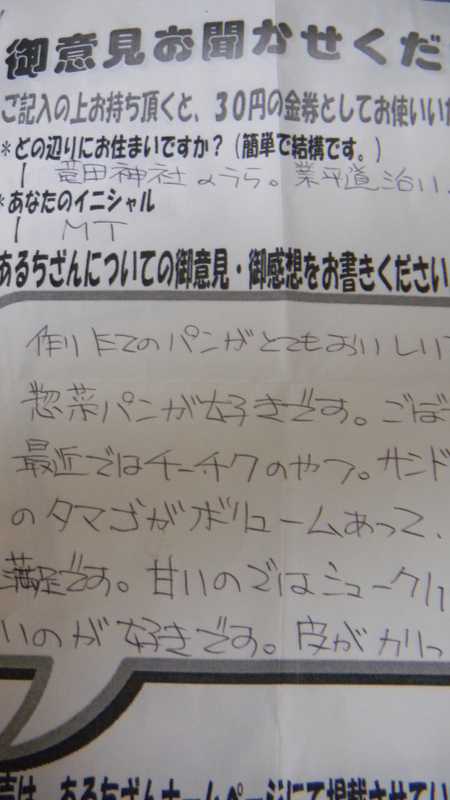 御意見お聞かせくだ
ご記入の上お持ち頂くと、30円の金券としてお使いいた
*どの辺りにお住まいですか?(簡単で結構です。)
竜田神社ょうら。業平道沿い。
*あなたのイニシャル
MT
あるちざんについての御意見・御感想をお書きください
作りたてのパンがとてもおいしいで
惣菜パンが好きです。ごぼ
最近ではチーチクのやつ。サンド
のタマゴがボリュームあって、
満足です。甘いのではミルククリ
いのが好きです。皮がカリっ
声は、あるちざんホームページにて掲載させてい